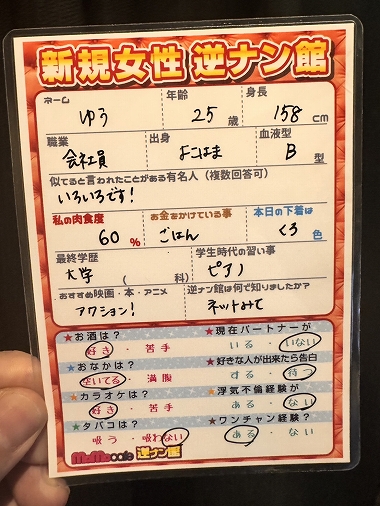 新規女性 逆ナン館
ネーム 年齢 身長
ゆう 25歳 158cm
職業 出身 血液型
会社員 よこはま B型
似てると言われたことがある有名人(複数回答可)
いろいろです!
私の肉食度 お金をかけている事 本日の下着は
60% ごはん くろ色
最終学歴 学生時代の習い事
大学( 科) ピアノ
おすすめ映画・本・アニメ 逆ナン館は何で知りましたか?
アクション! ネットみて
★お酒は? ★現在パートナーが
好き・苦手 いる・いない
★おなかは? ★好きな人が出来たら告白
空いてる・満腹 する・待つ
★カラオケは? ★浮気不倫経験が
好き・苦手 ある・ない
★タバコは? ★ワンチャン経験?
吸う・吸わない ある・ない
MoMo cafe 逆ナン館